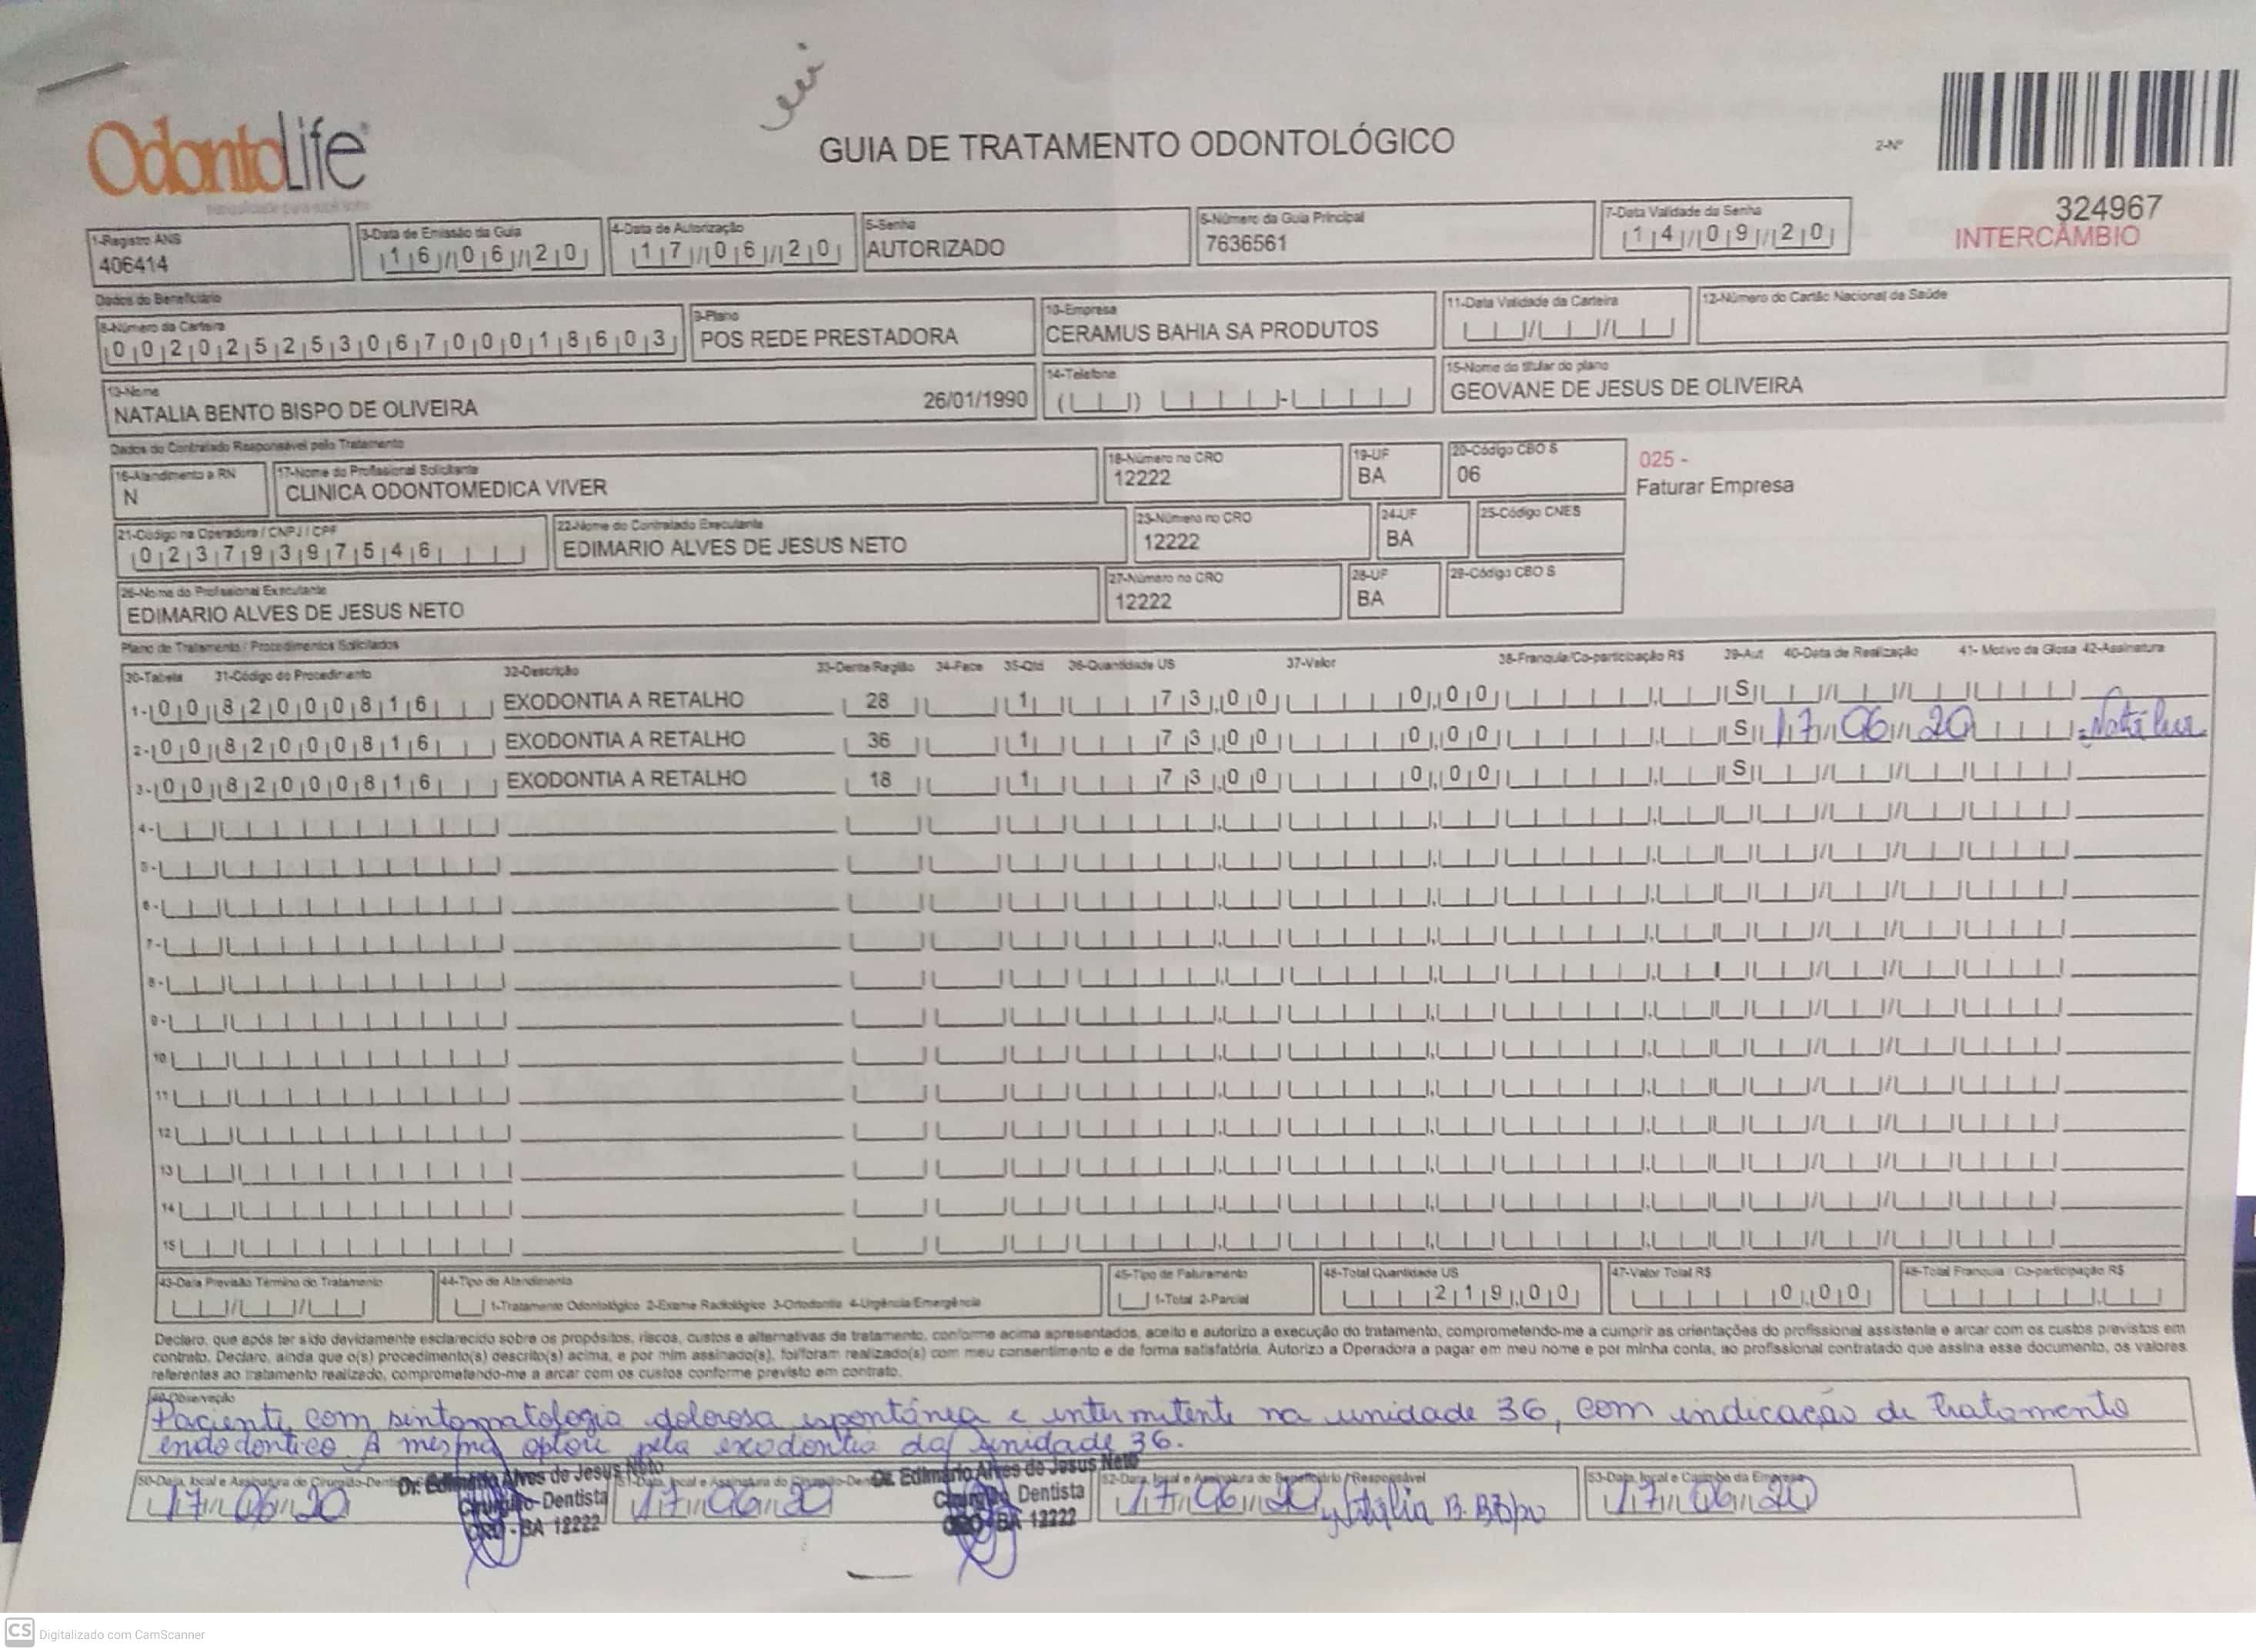 OdontoLife
GUIA DE TRATAMENTO ODONTOLÓGICO
2-Nº
324967
INTERCÂMBIO
1-Registro ANS
406414
3-Data de Emissão da Guia
16/06/20
4-Data de Autorização
17/06/20
5-Senha
AUTORIZADO
6-Número da Guia Principal
7636561
7-Data Validade da Senha
14/09/20
Dados do Beneficiário
8-Número da Carteira
00202525306700018603
9-Plano
POS REDE PRESTADORA
10-Empresa
CERAMUS BAHIA SA PRODUTOS
11-Data Validade da Carteira
12-Número do Cartão Nacional de Saúde
13-Nome
NATALIA BENTO BISPO DE OLIVEIRA 26/01/1990
14-Telefone
15-Nome do titular do plano
GEOVANE DE JESUS DE OLIVEIRA
Dados do Contratado Responsável pelo Tratamento
16-Atendimento a RN
N
17-Nome do Profissional Solicitante
CLINICA ODONTOMEDICA VIVER
18-Número no CRO
12222
19-UF
BA
20-Código CBO S
06
025 -
Faturar Empresa
21-Código na Operadora / CNPJ / CPF
02379397546
22-Nome do Contratado Executante
EDIMARIO ALVES DE JESUS NETO
23-Número no CRO
12222
24-UF
BA
25-Código CNES
26-Nome do Profissional Executante
EDIMARIO ALVES DE JESUS NETO
27-Número no CRO
12222
28-UF
BA
29-Código CBO S
Plano de Tratamento / Procedimentos Solicitados
30-Tabela 31-Código do Procedimento 32-Descrição 33-Dente/Região 34-Face 35-Qtd 36-Quantidade US 37-Valor 38-Franquia/Co-participação R$ 39-Aut 40-Data de Realização 41- Motivo da Glosa 42-Assinatura
1- 00 82000816 EXODONTIA A RETALHO 28 1 73,00 0,00 S
2- 00 82000816 EXODONTIA A RETALHO 36 1 73,00 0,00 S 17/06/20
3- 00 82000816 EXODONTIA A RETALHO 18 1 73,00 0,00 S
4-
5-
6-
7-
8-
9-
10
11
12
13
14
15
43-Data Previsão Término do Tratamento
44-Tipo de Atendimento
1-Tratamento Odontológico 2-Exame Radiológico 3-Ortodontia 4-Urgência/Emergência
45-Tipo de Faturamento
1-Total 2-Parcial
46-Total Quantidade US
219,00
47-Valor Total R$
0,00
48-Total Franquia / Co-participação R$
Declaro, que após ter sido devidamente esclarecido sobre os propósitos, riscos, custos e alternativas de tratamento, conforme acima apresentados, aceito e autorizo a execução do tratamento, comprometendo-me a cumprir as orientações do profissional assistente e arcar com os custos previstos em
contrato. Declaro, ainda que o(s) procedimento(s) descrito(s) acima, e por mim assinado(s), foi/foram realizado(s) com meu consentimento e de forma satisfatória. Autorizo a Operadora a pagar em meu nome e por minha conta, ao profissional contratado que assina esse documento, os valores
referentes ao tratamento realizado, comprometendo-me a arcar com os custos conforme previsto em contrato.
49-Observação
Paciente com sintomatologia dolorosa espontânea e intermitente na unidade 36, com indicação de tratamento
endodôntico. A mesma optou pela exodontia da unidade 36.
50-Data, local e Assinatura do Cirurgião-Dentista
17/06/20
Dr. Edimario Alves de Jesus Neto
Cirurgião-Dentista
CRO - BA 12222
51-Data, local e Assinatura do Cirurgião-Dentista
17/06/20
Dr. Edimario Alves de Jesus Neto
Cirurgião Dentista
CRO - BA 12222
52-Data, local e Assinatura do Beneficiário / Responsável
17/06/20 Natália B. Bispo
53-Data, local e Carimbo da Empresa
17/06/20
CS Digitalizado com CamScanner